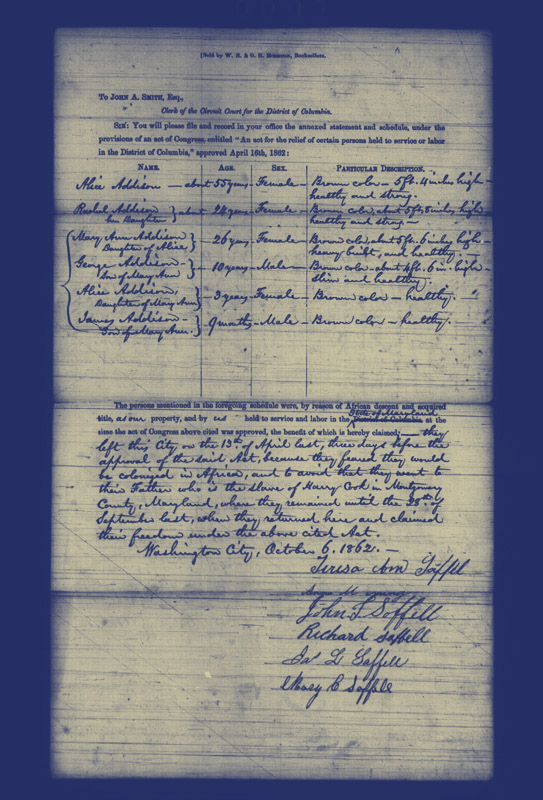 (Sold by W. H. & O. H. Morrison, Booksellers.
To John A. Smith, Esq.,
Clerk of the Circuit Court for the District of Columbia.
Sir: You will please file and record in your office the annexed statement and schedule, under the
provisions of an act of Congress, entitled "An act for the relief of certain persons held to service or labor
in the District of Columbia," approved April 16th, 1862:
Name. Age. Sex. Particular Description.
Alice Addison — about 55 years — Female — Brown color — 5 ft. 4 inches high —
healthy and strong.
Rachel Addison } about 24 years — Female — Brown color, about 5 ft, 5 inches high
her Daughter healthy and strong —
Mary Ann Addison } 26 years — Female — Brown color, about 5 ft. 6 inches high —
Daughter of Alice heavy built, and healthy —
George Addison — } 10 years — Male — Brown color — about 4 ft. 6 in. high —
Son of Mary Ann slim and healthy.
Alice Addison, } 3 years — Female — Brown color — healthy.
Daughter of Mary Ann
James Addison — } 9 months — Male — Brown color — healthy.
Son of Mary Ann.
The persons mentioned in the foregoing schedule were, by reason of African descent and acquired
State of Maryland
title, as our property, and by us held to service and labor in the District of Columbia at the
time the act of Congress above cited was approved, the benefit of which is hereby claimed; — they
left this City on the 13th of April last, three days before the
approval of the said Act, because they feared they would
be colonized in Africa, and to avoid that they went to
their Father who is the slave of Harry Cook in Montgomery
County, Maryland, where they remained until the 25th of
September last, when they returned here and claimed
their freedom under the above cited Act.
Washington City, October 6. 1862. —
Teresa Ann Soffell
John T Soffell
Richard Soffell
Jas L Soffell
Mary C Soffell